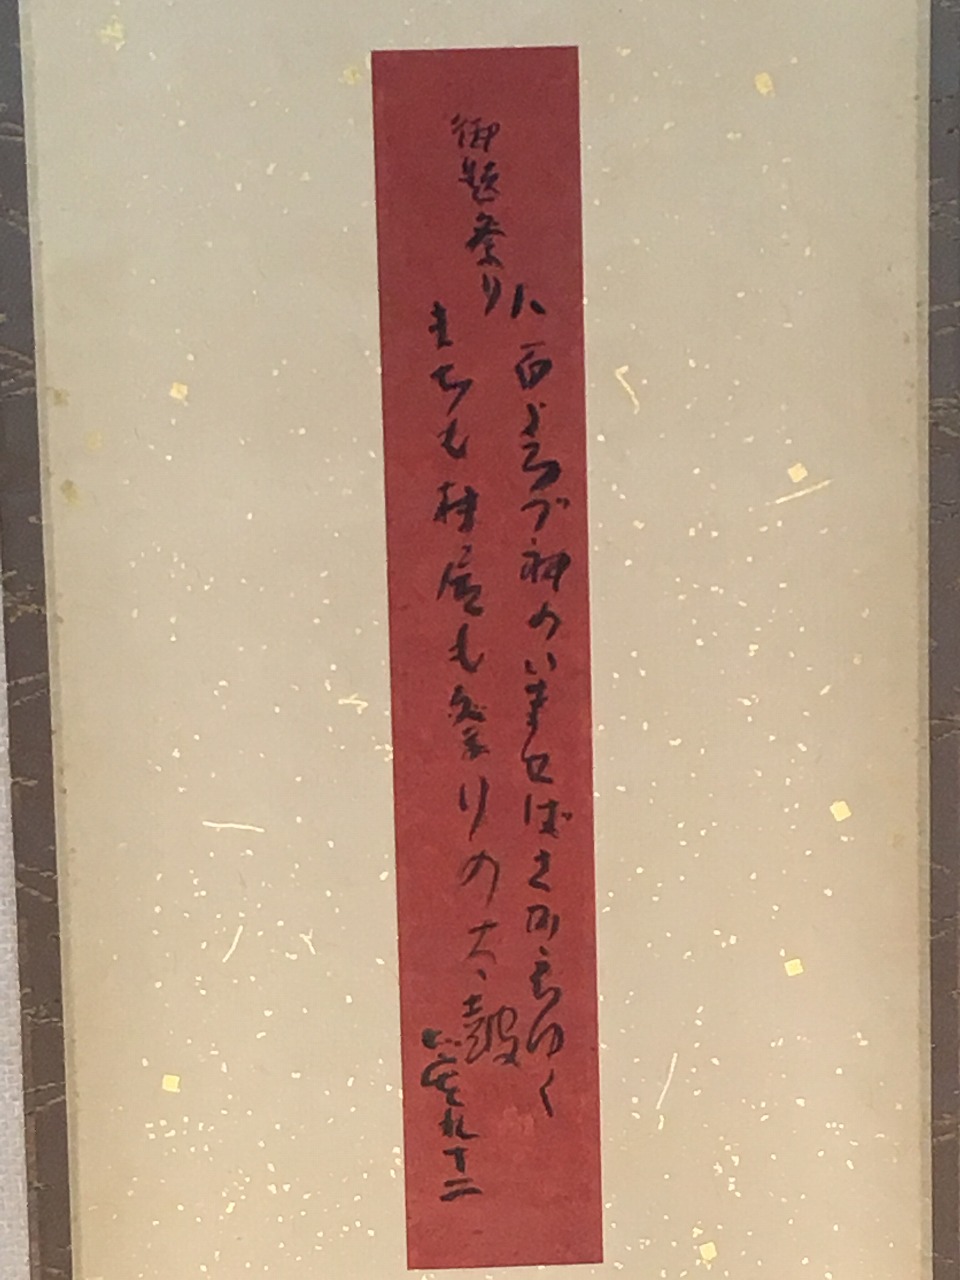 御題祭り
八百よろづ神のいませばさかえゆく
まちも村居も祭りの太鼓
九十二